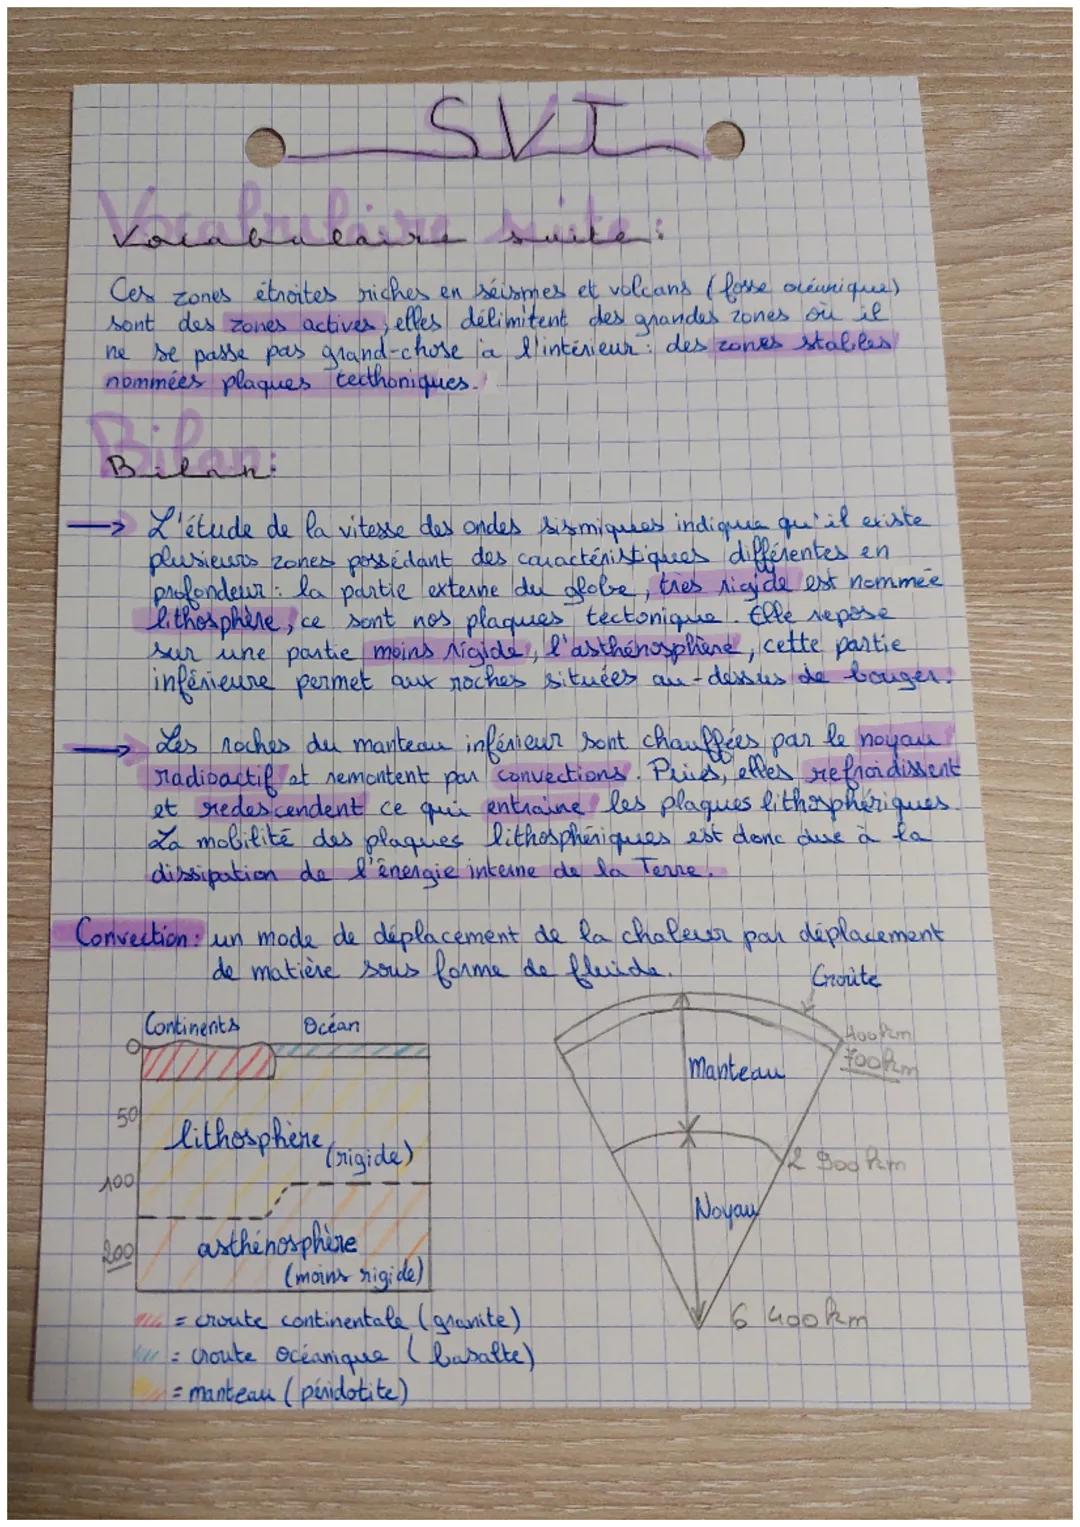 SVT
Vocabulaire suite :
Ces zones étroites riches en séismes et volcans (fosse océanique)
sont des zones actives, elles délimitent des grandes zones où il
ne se passe pas grand-chose à l'intérieur : des zones stables
nommées plaques tecthoniques.
Bilan :
→ L'étude de la vitesse des ondes sismiques indique qu'il existe
plusieurs zones possédant des caractéristiques différentes en
profondeur : la partie externe du globe, très rigide est nommée
lithosphère, ce sont nos plaques tectonique. Elle repose
sur une partie moins rigide, l'asthénosphère, cette partie
inférieure permet aux roches situées au-dessus de bouger.
→ Les roches du manteau inférieur sont chauffées par le noyau
radioactif et remontent par convections. Puis, elles refroidissent
et redescendent ce qui entraine les plaques lithosphériques.
La mobilité des plaques lithosphériques est donc due à la
dissipation de l'énergie interne de la Terre.
Convection : un mode de déplacement de la chaleur par déplacement
de matière sous forme de fluide.
Croûte
Continents Océan
0
400km
700km
Manteau
50
lithosphère (rigide)
100
2 900 km
Noyau
200
asthénosphère
(moins rigide)
6 400km
= croute continentale (granite)
= croute océanique (basalte)
= manteau (péridotite)